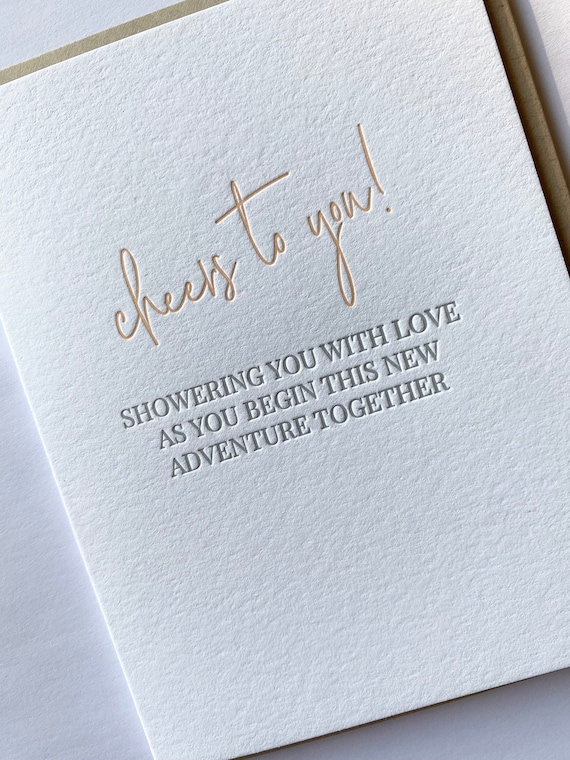 cheers to you!
SHOWERING YOU WITH LOVE
AS YOU BEGIN THIS NEW
ADVENTURE TOGETHER